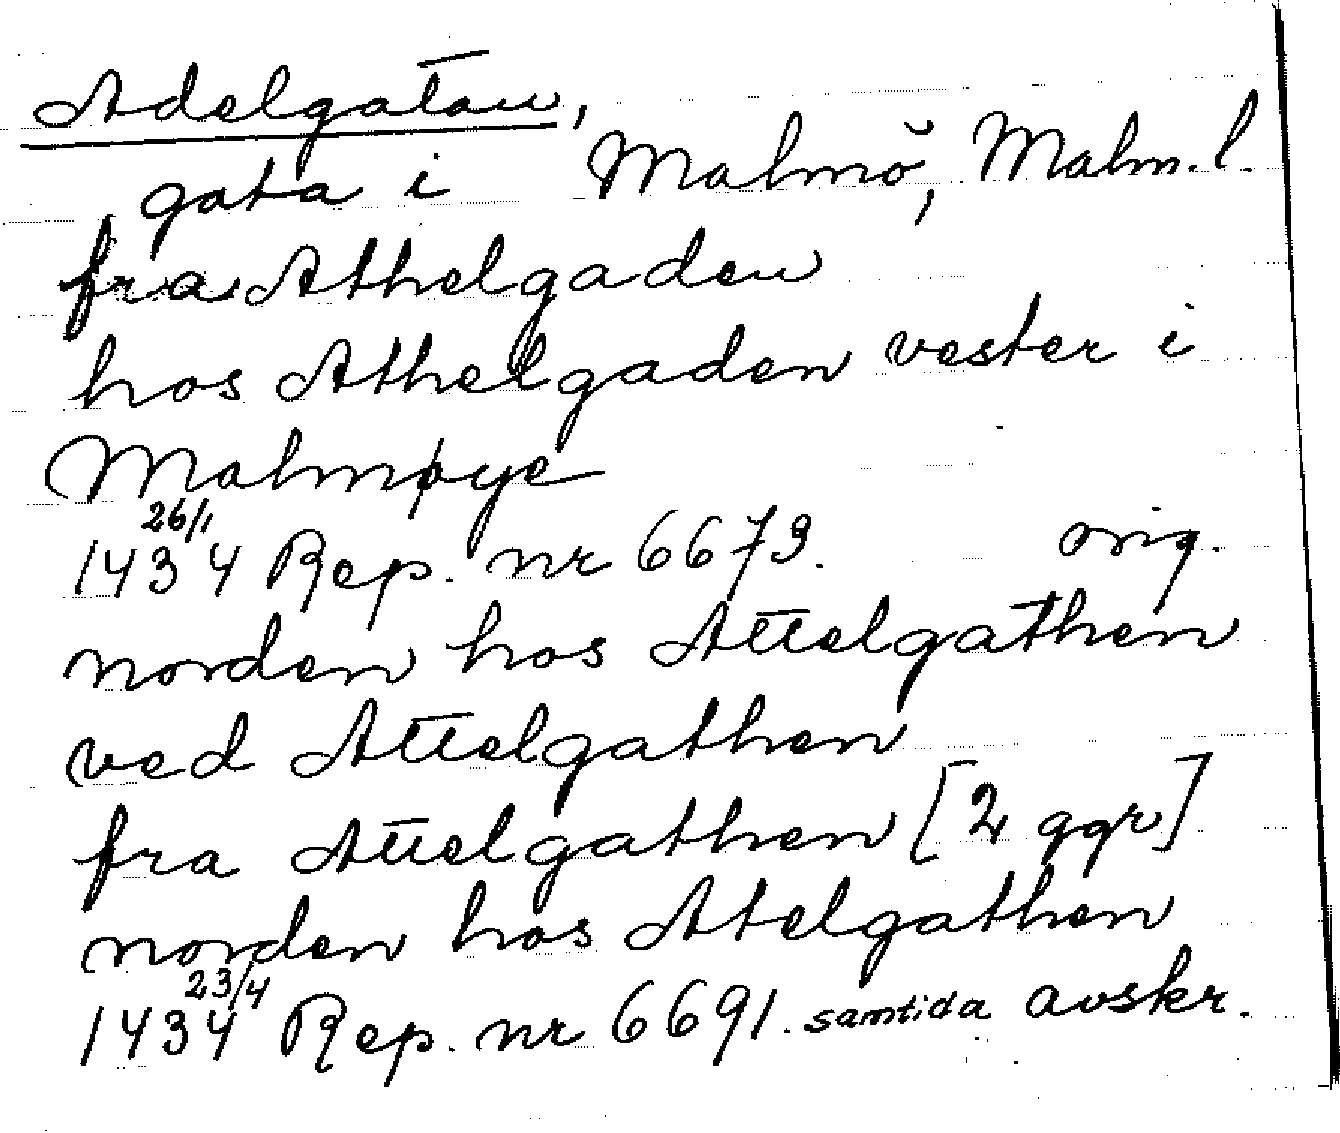 Adelgatan,
gata i Malmö, Malm. l.
fra Athelgaden
hos Athelgaden vester i
Malmøye
26/1
1434 Rep. nr 6673. orig.
norden hos Attelgathen
ved Attelgathen
fra Attelgathen [2 ggr]
norden hos Atelgathen
23/4
1434 Rep. nr 6691. samtida avskr.